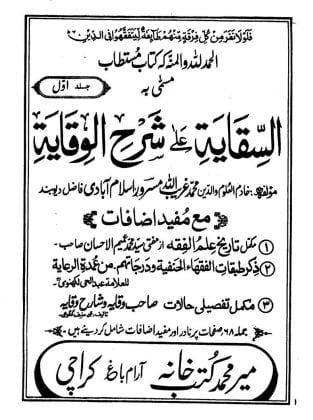 فلولا نفر من كل فرقة منهم طائفة ليتفقهوا في الدين
الحمد للہ والمنۃ کہ کتاب مستطاب
جلد اوّل
مسمّٰی بہ
السقایة علیٰ شرح الوقایة
مؤلفہ: خادم العلوم والدین محمد غریب اللہ مسرور اسلام آبادی فاضل دیوبند
مع مفید اضافات
① مکمل تاریخ علم الفقہ از مفتی سید محمد عمیم الاحسان صاحب۔
② ذکر طبقات الفقہاء الحنفیة ودرجاتہم۔ من عمدة الرعایة
للعلامة عبدالحی لکھنوی
③ مکمل تفصیلی حالات صاحب وقایہ وشارح وقایہ
تالیف محمد حنیف گنگوہی
جملہ ۶۸ صفحات پر نادر اور مفید اضافات شامل کر دیئے ہیں۔
میر محمد کتب خانہ آرام باغ کراچی
۱